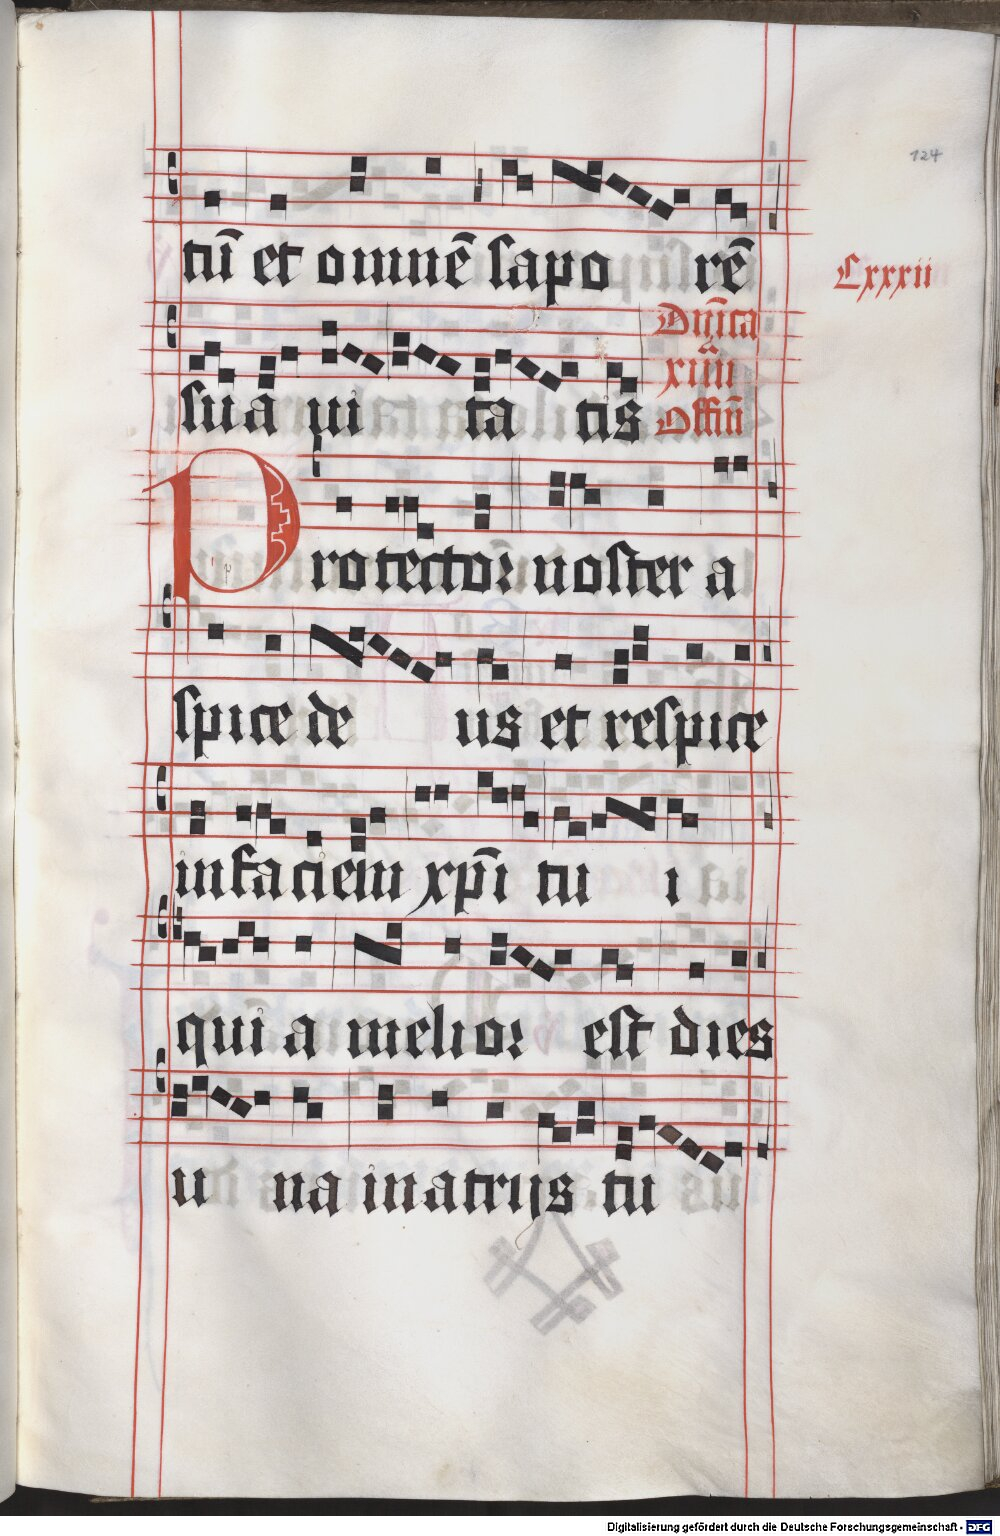 124
tū et omnē sapo rē
Cxxxii
sua ui ta tis
Dn̄ica
xiiii
Offm̄
Protector noster a
spice de us et respice
in faciem xp̄i tu i
qui a melior est dies
u na in atrijs tu
Digitalisierung gefördert durch die Deutsche Forschungsgemeinschaft - DFG